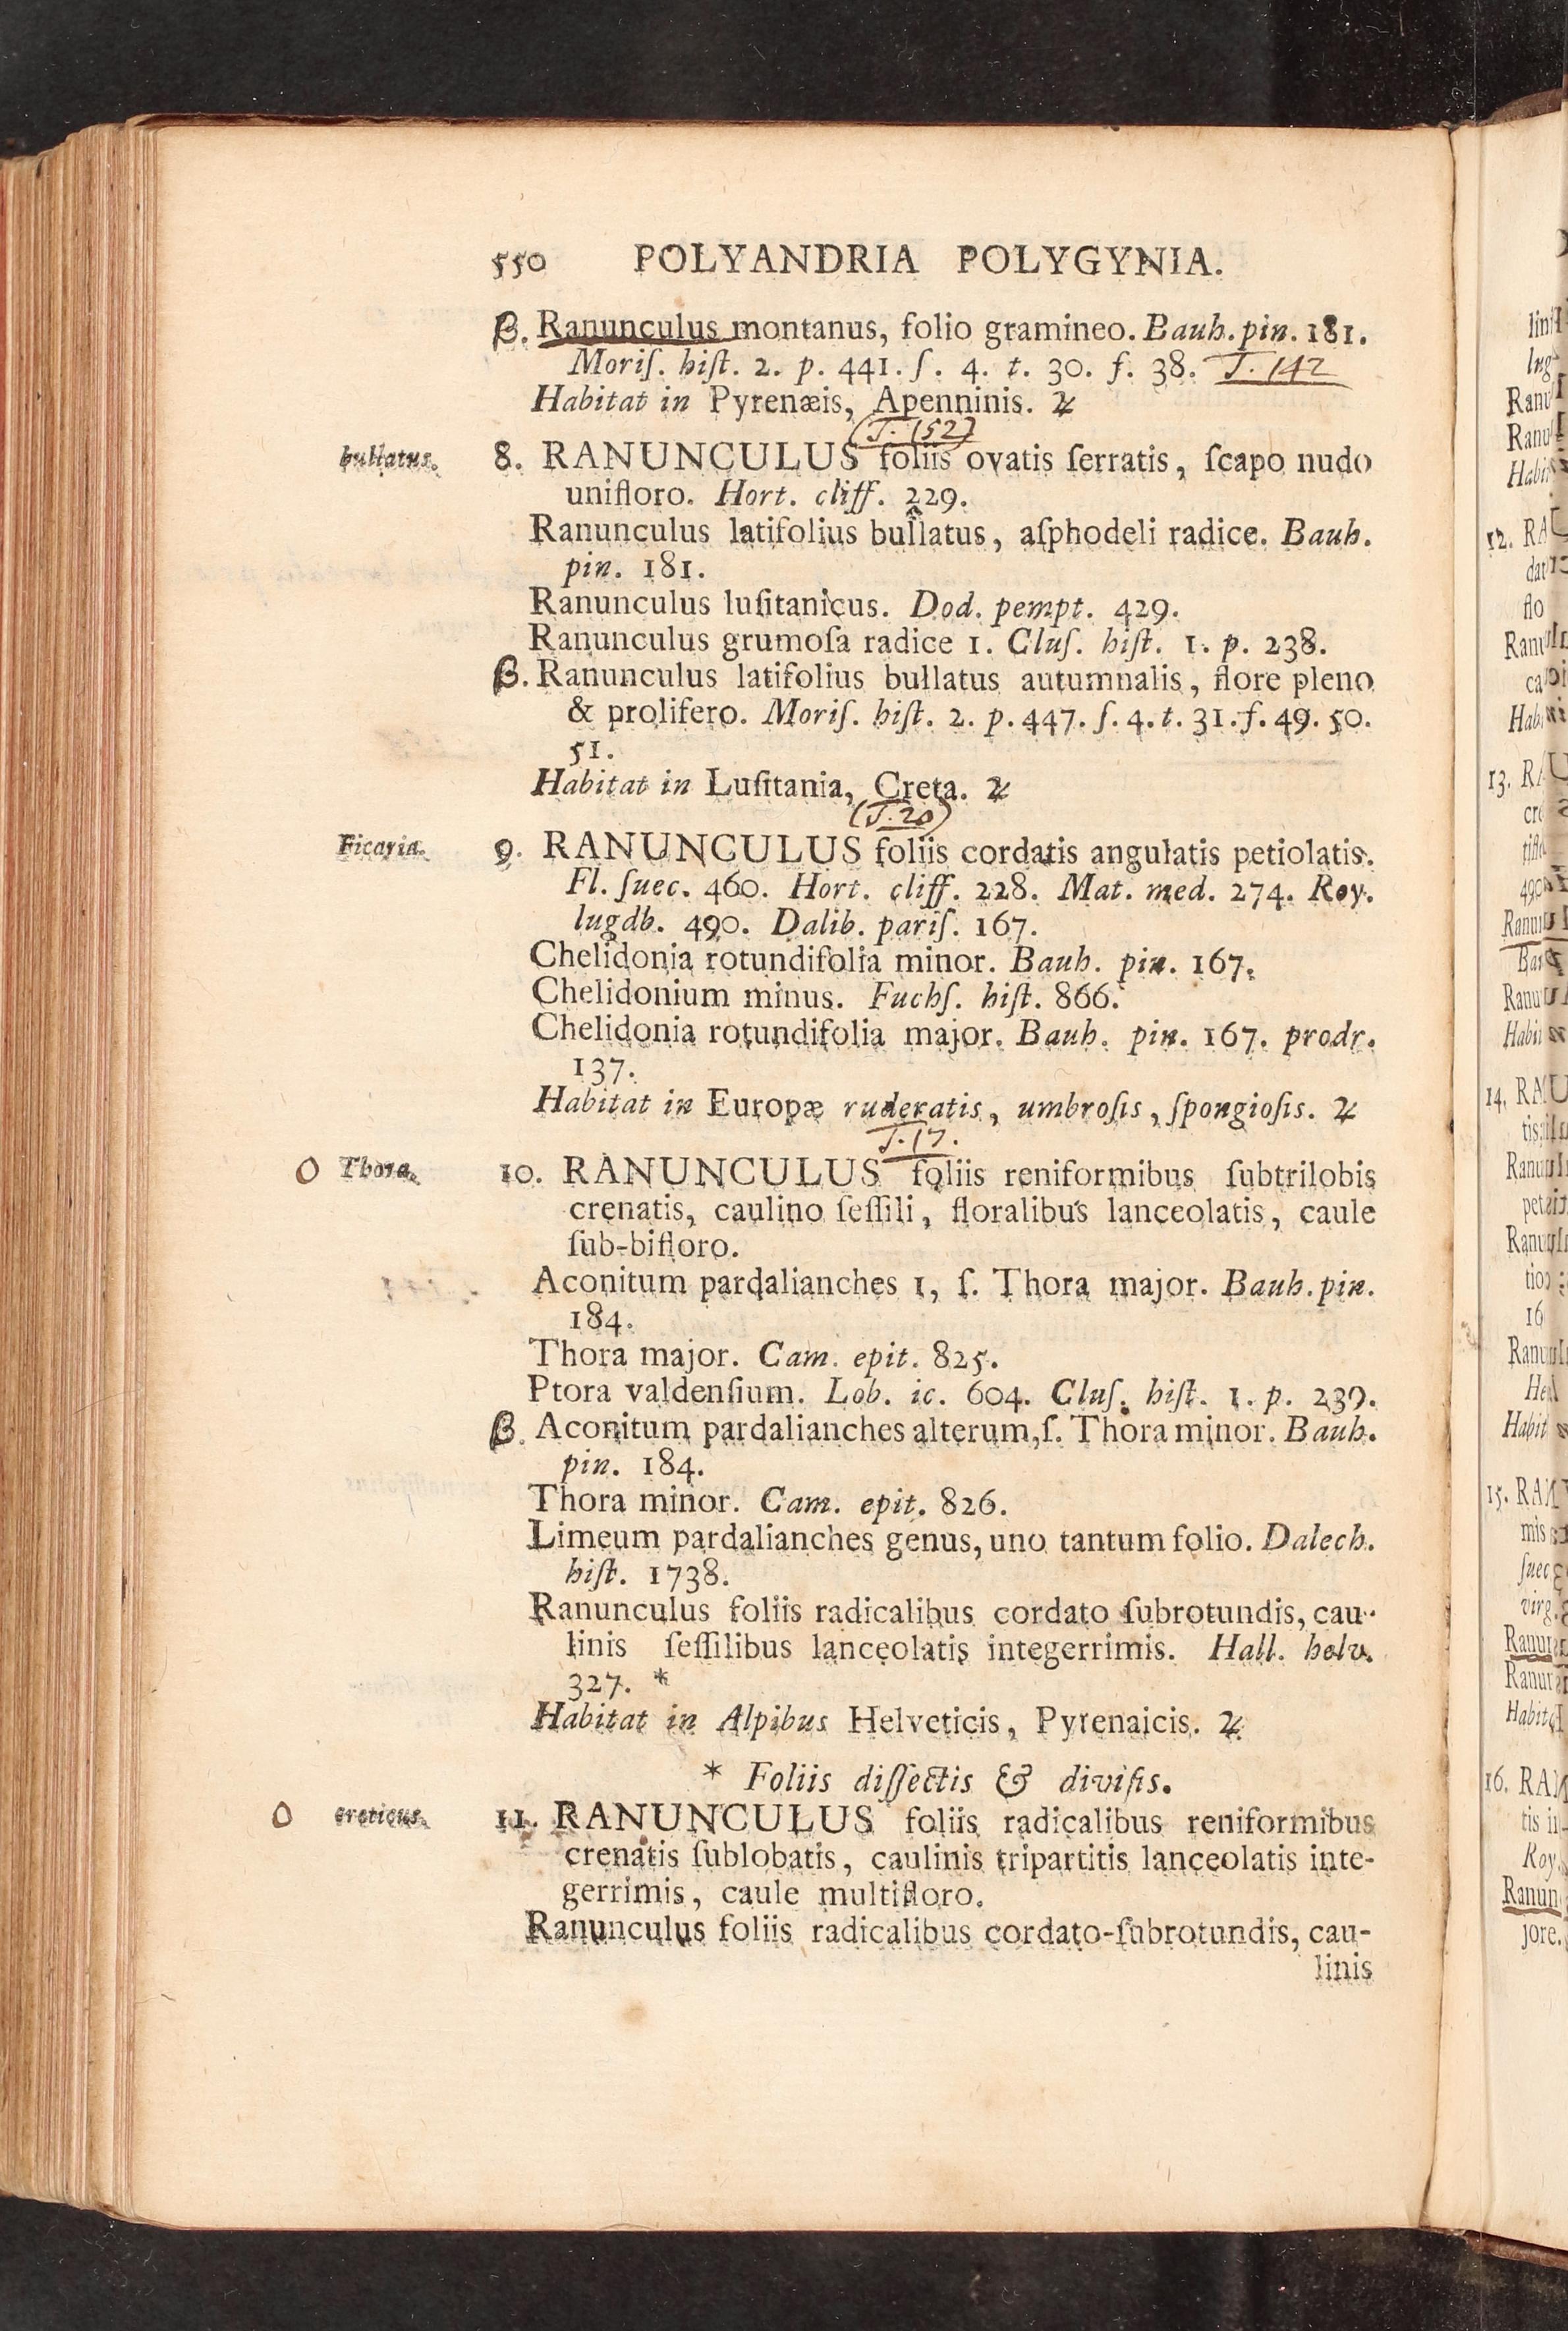 550 POLYANDRIA POLYGYNIA.
β. Ranunculus montanus, folio gramineo. Bauh. pin. 181.
Moriſ. hiſt. 2. p. 441. ſ. 4. t. 30. f. 38. T. 142
Habitat in Pyrenæis, Apenninis. ♃
(T. 152)
bullatus. 8. RANUNCULUS foliis ovatis ſerratis, ſcapo nudo
unifloro. Hort. cliff. 229.
Ranunculus latifolius bullatus, aſphodeli radice. Bauh.
pin. 181.
Ranunculus luſitanicus. Dod. pempt. 429.
Ranunculus grumoſa radice 1. Cluſ. hiſt. 1. p. 238.
β. Ranunculus latifolius bullatus autumnalis, flore pleno
& prolifero. Moriſ. hiſt. 2. p. 447. ſ. 4. t. 31. f. 49. 50.
51.
Habitat in Luſitania, Creta. ♃
(T. 20)
Ficaria. 9. RANUNCULUS foliis cordatis angulatis petiolatis.
Fl. ſuec. 460. Hort. cliff. 228. Mat. med. 274. Roy.
lugdb. 490. Dalib. pariſ. 167.
Chelidonia rotundifolia minor. Bauh. pin. 167.
Chelidonium minus. Fuchſ. hiſt. 866.
Chelidonia rotundifolia major. Bauh. pin. 167. prodr.
137.
Habitat in Europæ ruderatis, umbroſis, ſpongioſis. ♃
T. 17.
O Thora. 10. RANUNCULUS foliis reniformibus ſubtrilobis
crenatis, caulino ſeſſili, floralibus lanceolatis, caule
ſub-bifloro.
Aconitum pardalianches 1, ſ. Thora major. Bauh. pin.
184.
Thora major. Cam. epit. 825.
Ptora valdenſium. Lob. ic. 604. Cluſ. hiſt. 1. p. 239.
β. Aconitum pardalianches alterum, ſ. Thora minor. Bauh.
pin. 184.
Thora minor. Cam. epit. 826.
Limeum pardalianches genus, uno tantum folio. Dalech.
hiſt. 1738.
Ranunculus foliis radicalibus cordato ſubrotundis, cau-
linis ſeſſilibus lanceolatis integerrimis. Hall. helv.
327. *
Habitat in Alpibus Helveticis, Pyrenaicis. ♃
* Foliis diſſectis & diviſis.
O creticus. 11. RANUNCULUS foliis radicalibus reniformibus
crenatis ſublobatis, caulinis tripartitis lanceolatis inte-
gerrimis, caule multifloro.
Ranunculus foliis radicalibus cordato-ſubrotundis, cau-
linis